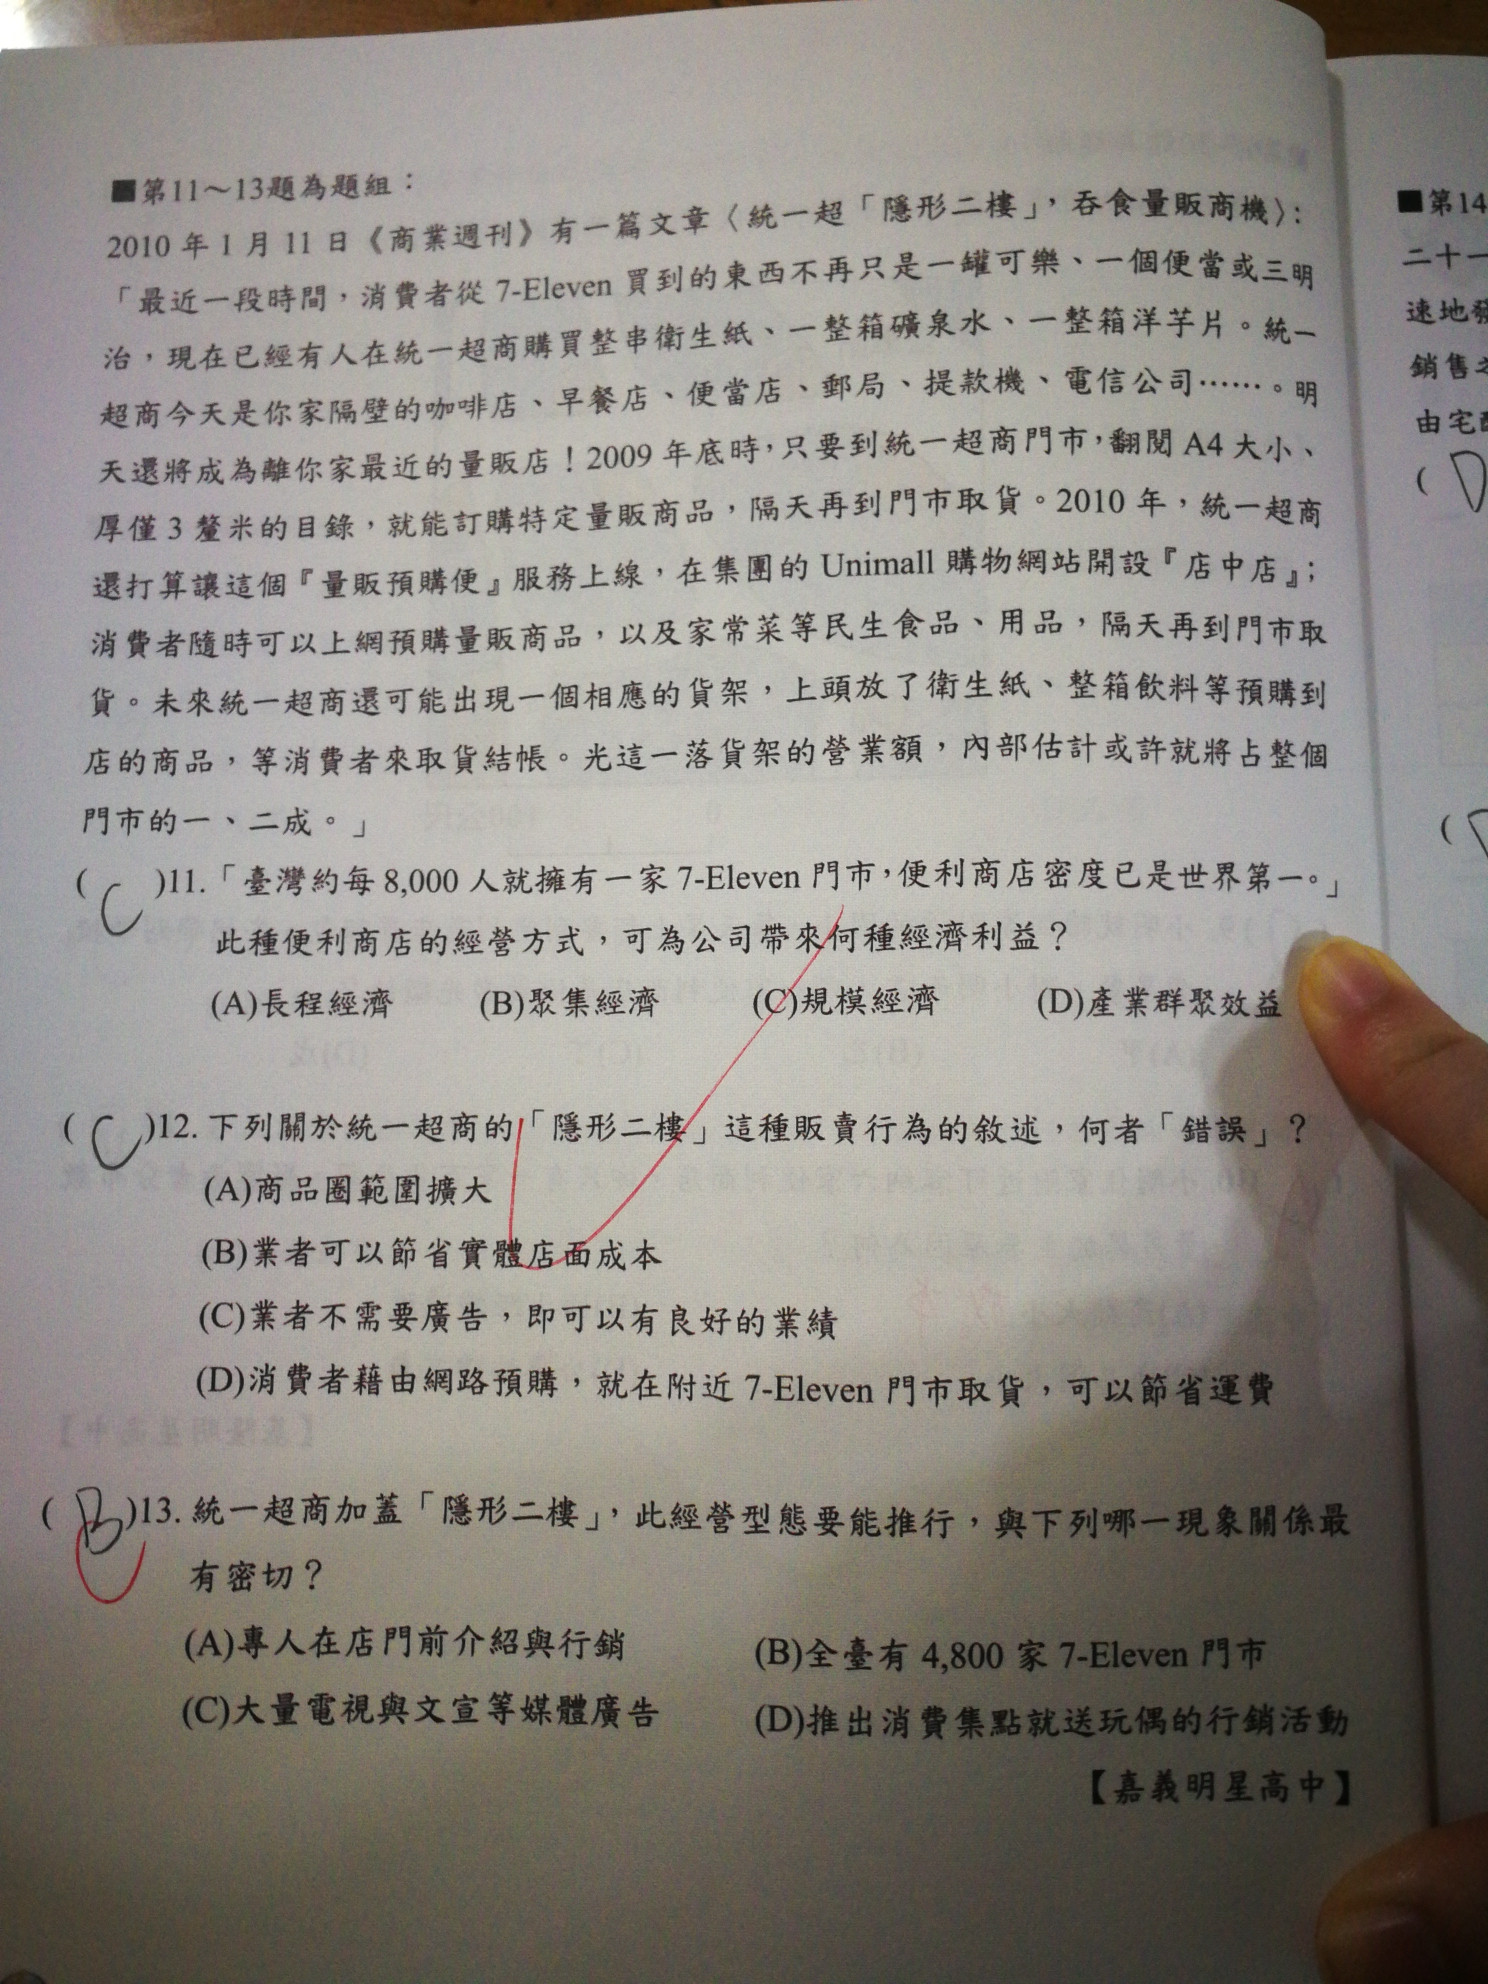 ■第11～13題為題組：
2010 年 1 月 11 日《商業週刊》有一篇文章〈統一超「隱形二樓」，吞食量販商機〉：
「最近一段時間，消費者從 7-Eleven 買到的東西不再只是一罐可樂、一個便當或三明
治，現在已經有人在統一超商購買整串衛生紙、一整箱礦泉水、一整箱洋芋片。統一
超商今天是你家隔壁的咖啡店、早餐店、便當店、郵局、提款機、電信公司……。明
天還將成為離你家最近的量販店！2009 年底時，只要到統一超商門市，翻閱 A4 大小、
厚僅 3 釐米的目錄，就能訂購特定量販商品，隔天再到門市取貨。2010 年，統一超商
還打算讓這個『量販預購便』服務上線，在集團的 Unimall 購物網站開設『店中店』；
消費者隨時可以上網預購量販商品，以及家常菜等民生食品、用品，隔天再到門市取
貨。未來統一超商還可能出現一個相應的貨架，上頭放了衛生紙、整箱飲料等預購到
店的商品，等消費者來取貨結帳。光這一落貨架的營業額，內部估計或許就將占整個
門市的一、二成。」
( C )11.「臺灣約每 8,000 人就擁有一家 7-Eleven 門市，便利商店密度已是世界第一。」
此種便利商店的經營方式，可為公司帶來何種經濟利益？
(A)長程經濟 (B)聚集經濟 (C)規模經濟 (D)產業群聚效益
( C )12. 下列關於統一超商的「隱形二樓」這種販賣行為的敘述，何者「錯誤」？
(A)商品圈範圍擴大
(B)業者可以節省實體店面成本
(C)業者不需要廣告，即可以有良好的業績
(D)消費者藉由網路預購，就在附近 7-Eleven 門市取貨，可以節省運費
( B )13. 統一超商加蓋「隱形二樓」，此經營型態要能推行，與下列哪一現象關係最
有密切？
(A)專人在店門前介紹與行銷 (B)全臺有 4,800 家 7-Eleven 門市
(C)大量電視與文宣等媒體廣告 (D)推出消費集點就送玩偶的行銷活動
【嘉義明星高中】
■第14
二十一
速地發
銷售之
由宅配
( D
(